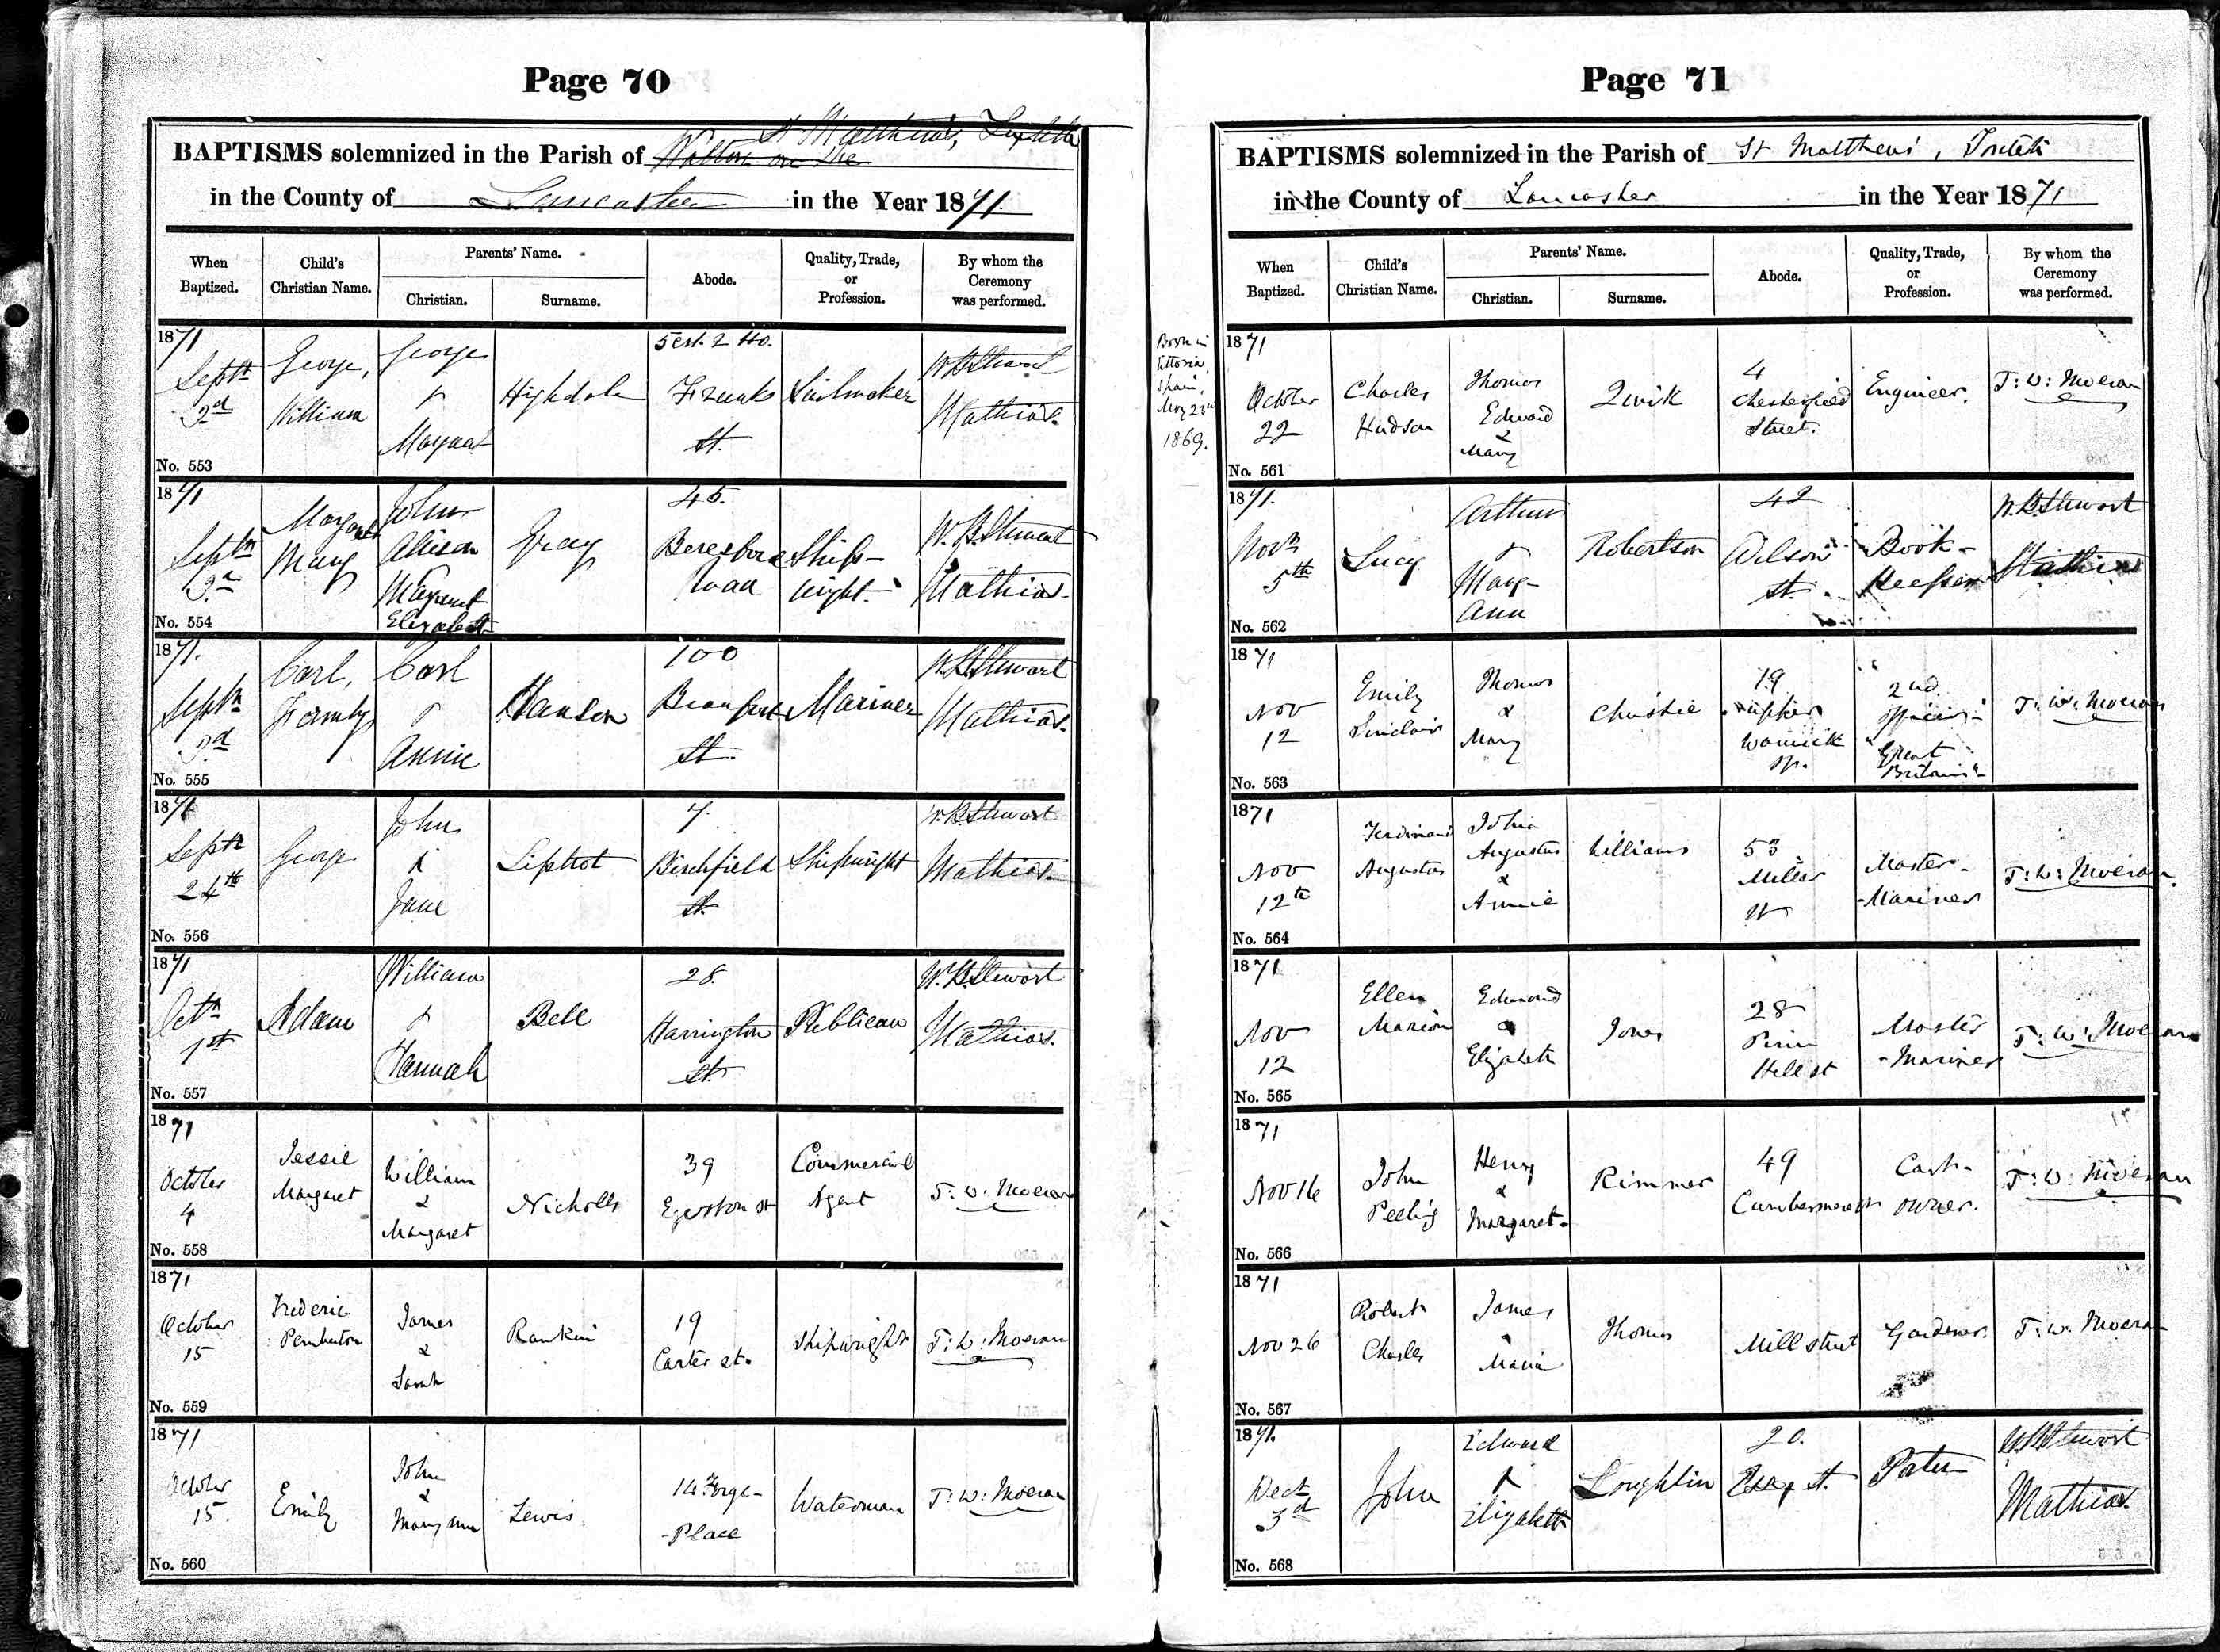 Page 70
BAPTISMS solemnized in the Parish of St Matthews, Toxteth
Walton on the
in the County of Lancaster in the Year 1871.
When Baptized.
Child's Christian Name.
Parents' Name.
Christian.
Surname.
Abode.
Quality, Trade, or Profession.
By whom the Ceremony was performed.
1871
Septr
3d
No. 553
George,
William
George
&
Margaret
Highdale
5 Crt. 2 Ho.
Franks
St.
Sailmaker
W. B. Stewart
Mathias.
1871
Septr
3d
No. 554
Margaret
Mary
John
Alison
Margaret
Elizabeth
Gray
45.
Beresford
Road
Ship-
wright.
W. B. Stewart
Mathias.
1871.
Septr
3d
No. 555
Carl,
Formby
Carl
&
Annie
Hansen
100
Beaufort
St.
Mariner
W. B. Stewart
Mathias.
1871
Septr
24th
No. 556
George
John
&
Jane
Liptrot
7.
Birchfield
St.
Shipwright
W. B. Stewart
Mathias.
1871
Octr
1st
No. 557
Adam
William
&
Hannah
Bell
28.
Harrington
St.
Publican
W. B. Stewart
Mathias.
1871
October
4
No. 558
Jessie
Margaret
William
&
Margaret
Nicholls
39
Egerton st
Commercial
Agent
T: W: Moeran
1871
October
15
No. 559
Frederic
Pemberton
James
&
Sarah
Rankin
19
Carter st.
Shipwright
T: W: Moeran
1871
October
15.
No. 560
Emily
John
&
Mary Ann
Lewis
14 Forge-
-Place
Waterman
T: W: Moeran
Page 71
BAPTISMS solemnized in the Parish of St Matthews', Toxteth
in the County of Lancaster in the Year 1871
When Baptized.
Child's Christian Name.
Parents' Name.
Christian.
Surname.
Abode.
Quality, Trade, or Profession.
By whom the Ceremony was performed.
Born in
Vittoria,
Spain,
May 23rd
1869.
1871
October
22
No. 561
Charles
Hudson
Thomas
Edward
&
Mary
Quirk
4
Chesterfield
Street.
Engineer.
T: W: Moeran
1871.
Novr
5th
No. 562
Lucy
Arthur
&
Mary-
Ann
Robertson
42
Wilson
St.
Book-
Keeper
W. B. Stewart
Mathias
1871
Nov
12
No. 563
Emily
Sinclair
Thomas
&
Mary
Christie
19
Upper
Warwick
St.
2nd
Officer-
"Great
Britain"-
T: W: Moeran
1871
Nov
12th
No. 564
Ferdinand
Augustus
John
Augustus
&
Annie
Williams
53
Miller
St
Master-
-Mariner
T: W: Moeran.
1871
Nov
12
No. 565
Ellen
Marion
Edmond
&
Elizabeth
Jones
28
Hill st
Master
-Mariner
T: W: Moeran
1871
Nov 16
No. 566
John
Peeling
Henry
&
Margaret.
Rimmer
49
Combermere st
Cart-
owner.
T: W: Moeran
1871
Nov 26
No. 567
Robert
Charles
James
&
Maria
Thomas
Mill street
Gardener.
T: W: Moeran
1871.
Decr
3d
No. 568
John
Edward
&
Elizabeth
Loughlin
20.
Essex St.
Porter
W. B. Stewart
Mathias.